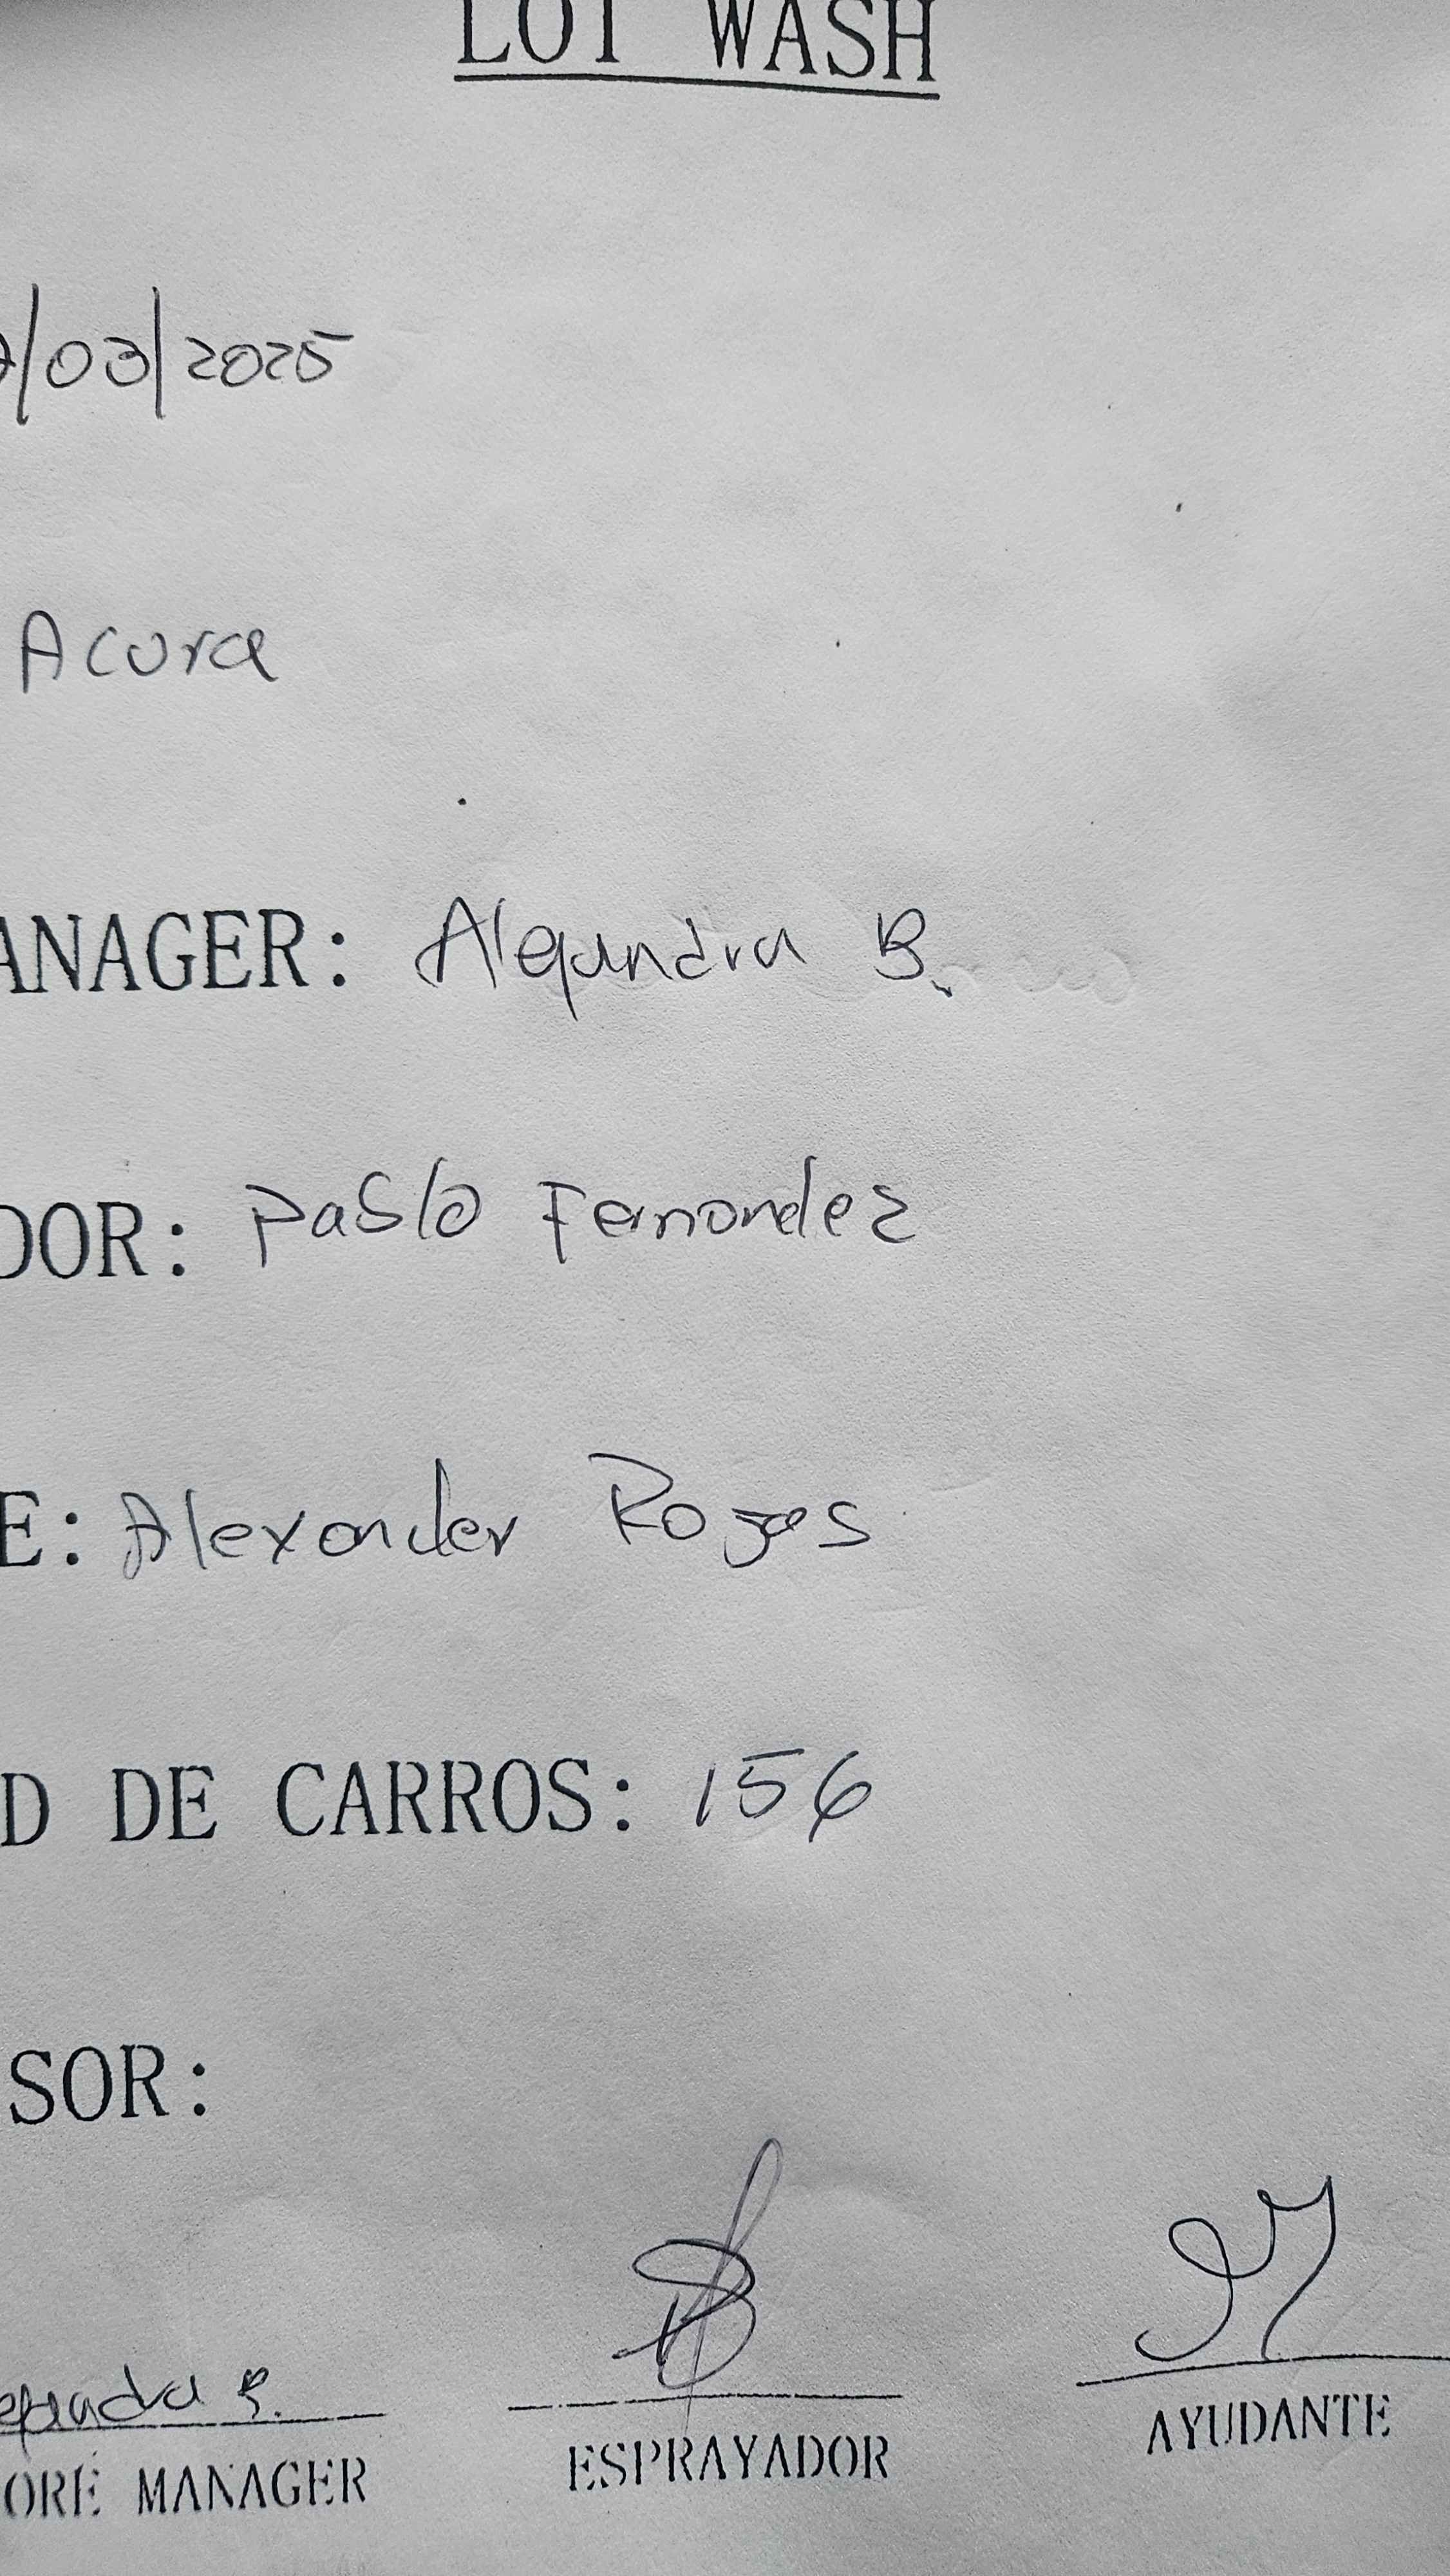 LOT WASH
/03/2025
Acura
ANAGER: Alejandra B.
DOR: Pablo Fernandez
E: Alexander Rojas
D DE CARROS: 156
SOR:
ejandra B.
ORE MANAGER
ESPRAYADOR
AYUDANTE